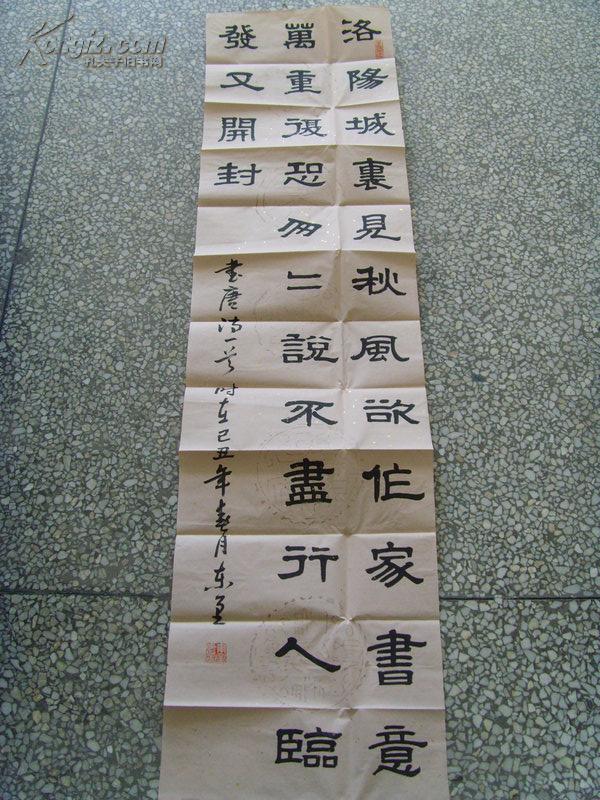 洛陽城裏見秋風欲作家書意
萬重復恐匆〻說不盡行人臨
發又開封
书唐诗一首时在己丑年春月东
Kongfz.com
孔夫子旧书网